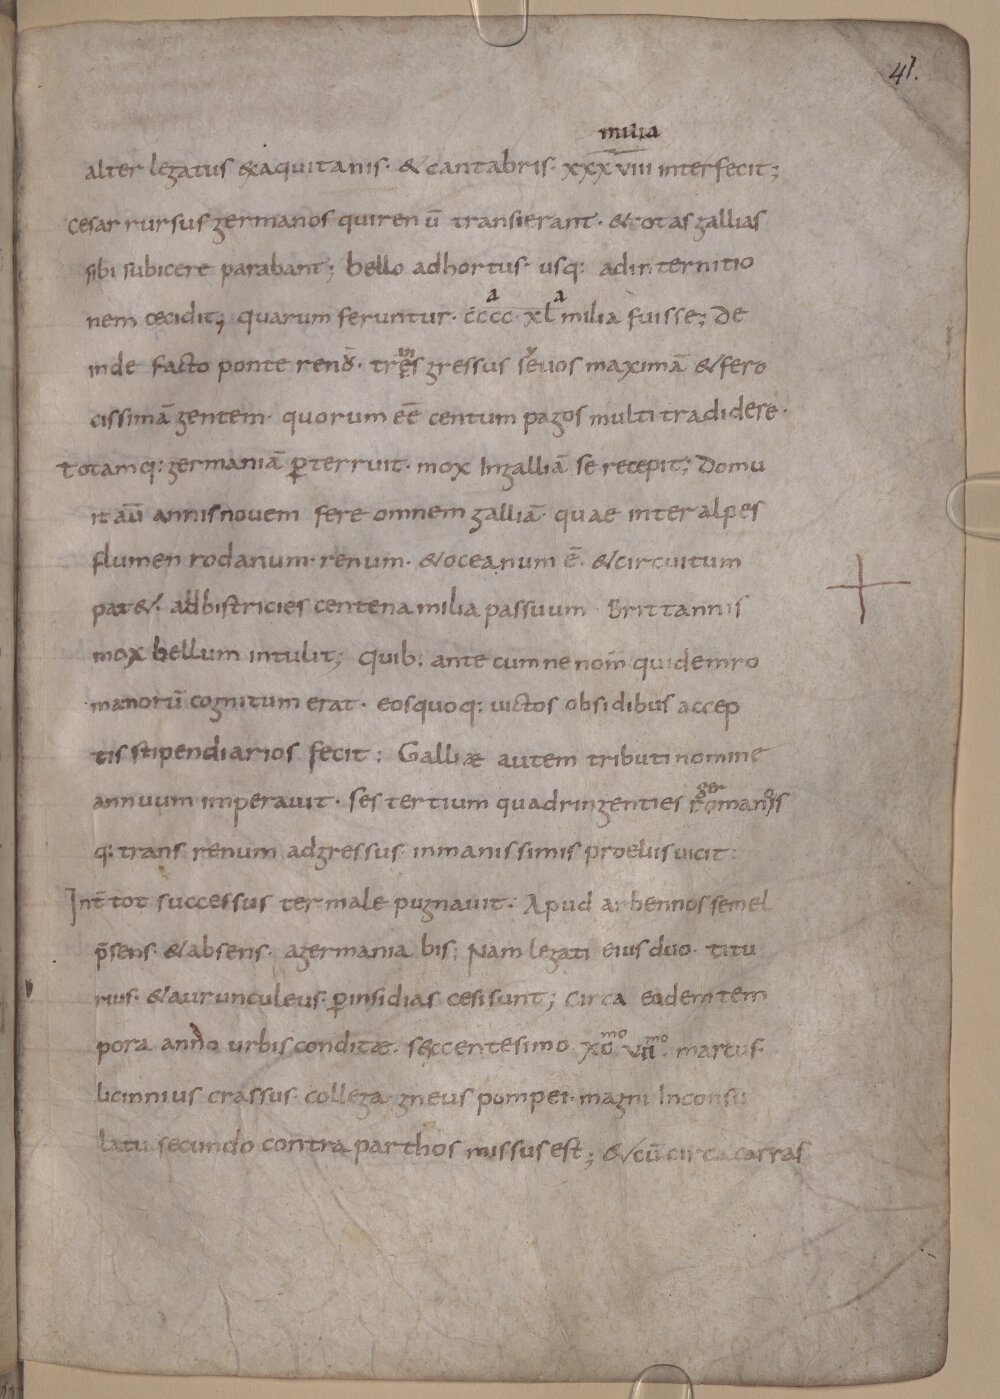 41.
milia
alter legatus &aquitanis · & cantabris · xxxviii interfecit;
Cesar rursus germanos quirenū transierant · & totas gallias
sibi subicere parabant; bello adhortus · usq: adinternitio
nem cecidit; quarum feruntur · cccc · xl milia fuisse; De
inde facto ponte renū · gressus seuos maximā & fero
cissimā gentem · quorum eē centum pagos multi tradidere ·
totamq: germaniā ꝑterruit · mox Ingalliā se recepit; Domu
it aū annis nouem fere omnem galliā · quae inter alpes
flumen rodanum · renum · & oceanum ē · & circuitum
pat& · bistricies centena milia passuum Brittannis
mox bellum intulit; Quib: ante cum ne nom̄ quidem ro
manorū cognitum erat · eosquoq: uictos obsidibus accep
tis stipendiarios fecit; Galliæ autem tributi nomine
annuum imperauit · sestertium quadringenties romanis
q: trans renum adgressus inmanissimis proeliis uicit:
Int̄ tot successus ter male pugnauit · Apud arbennos semel
p̄sens · & absens · agermania bis; Nam legati eius duo · titu
rius · & aurunculeus · ꝑinsidias cesi sunt; Circa eodem tem
pora anno urbis conditæ · sexcentesimo martus
licinnius crassus · collega gneus pompei · magni Inconsu
latu secundo contra parthos missus est; & cū circa carras